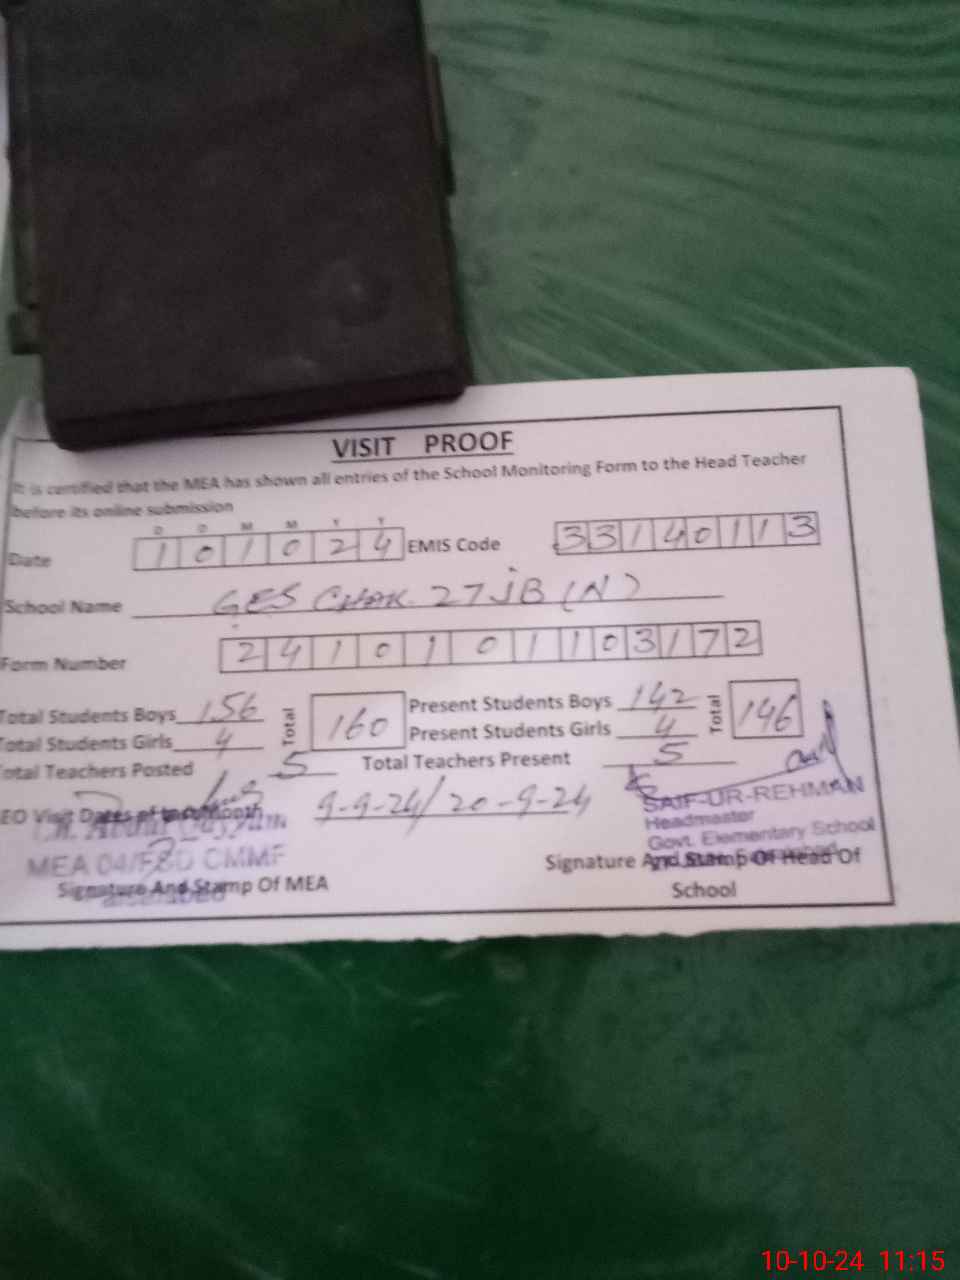 VISIT PROOF
It is certified that the MEA has shown all entries of the School Monitoring Form to the Head Teacher
before its online submission
D D M M Y Y
Date 1 0 1 0 2 4 EMIS Code 3 3 1 4 0 1 1 3
School Name GES CHAK. 27 JB (N)
Form Number 2 4 1 0 1 0 1 1 0 3 1 7 2
Total Students Boys 156 Total 160 Present Students Boys 142 Total 146
Total Students Girls 4 Present Students Girls 4
Total Teachers Posted 5 Total Teachers Present 5
EO Visit Dates of 9-9-24/20-9-24
SAIF-UR-REHMAN
Headmaster
Govt. Elementary School
MEA 04/FSD CMMF
Signature And Stamp Of MEA
Signature And Stamp Of Head Of
School
10-10-24 11:15